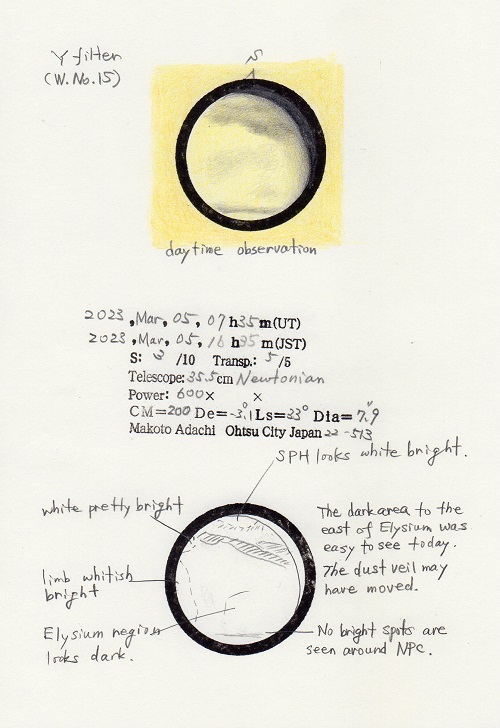 Y filter
(W.No.15)
S
daytime observation
2023, Mar, 05, 07h35m(UT)
2023, Mar, 05, 16h35m(JST)
S: 3 /10 Transp.: 5/5
Telescope: 35.5cm Newtonian
Power: 600× ×
CM=200 De=-3.1° Ls=33° Dia=7.9"
Makoto Adachi Ohtsu City Japan 22-513
SPH looks white bright.
white pretty bright
The dark area to the
east of Elysium was
easy to see today.
The dust veil may
have moved.
limb whitish
bright
Elysium region
looks dark.
No bright spots are
seen around NPC.